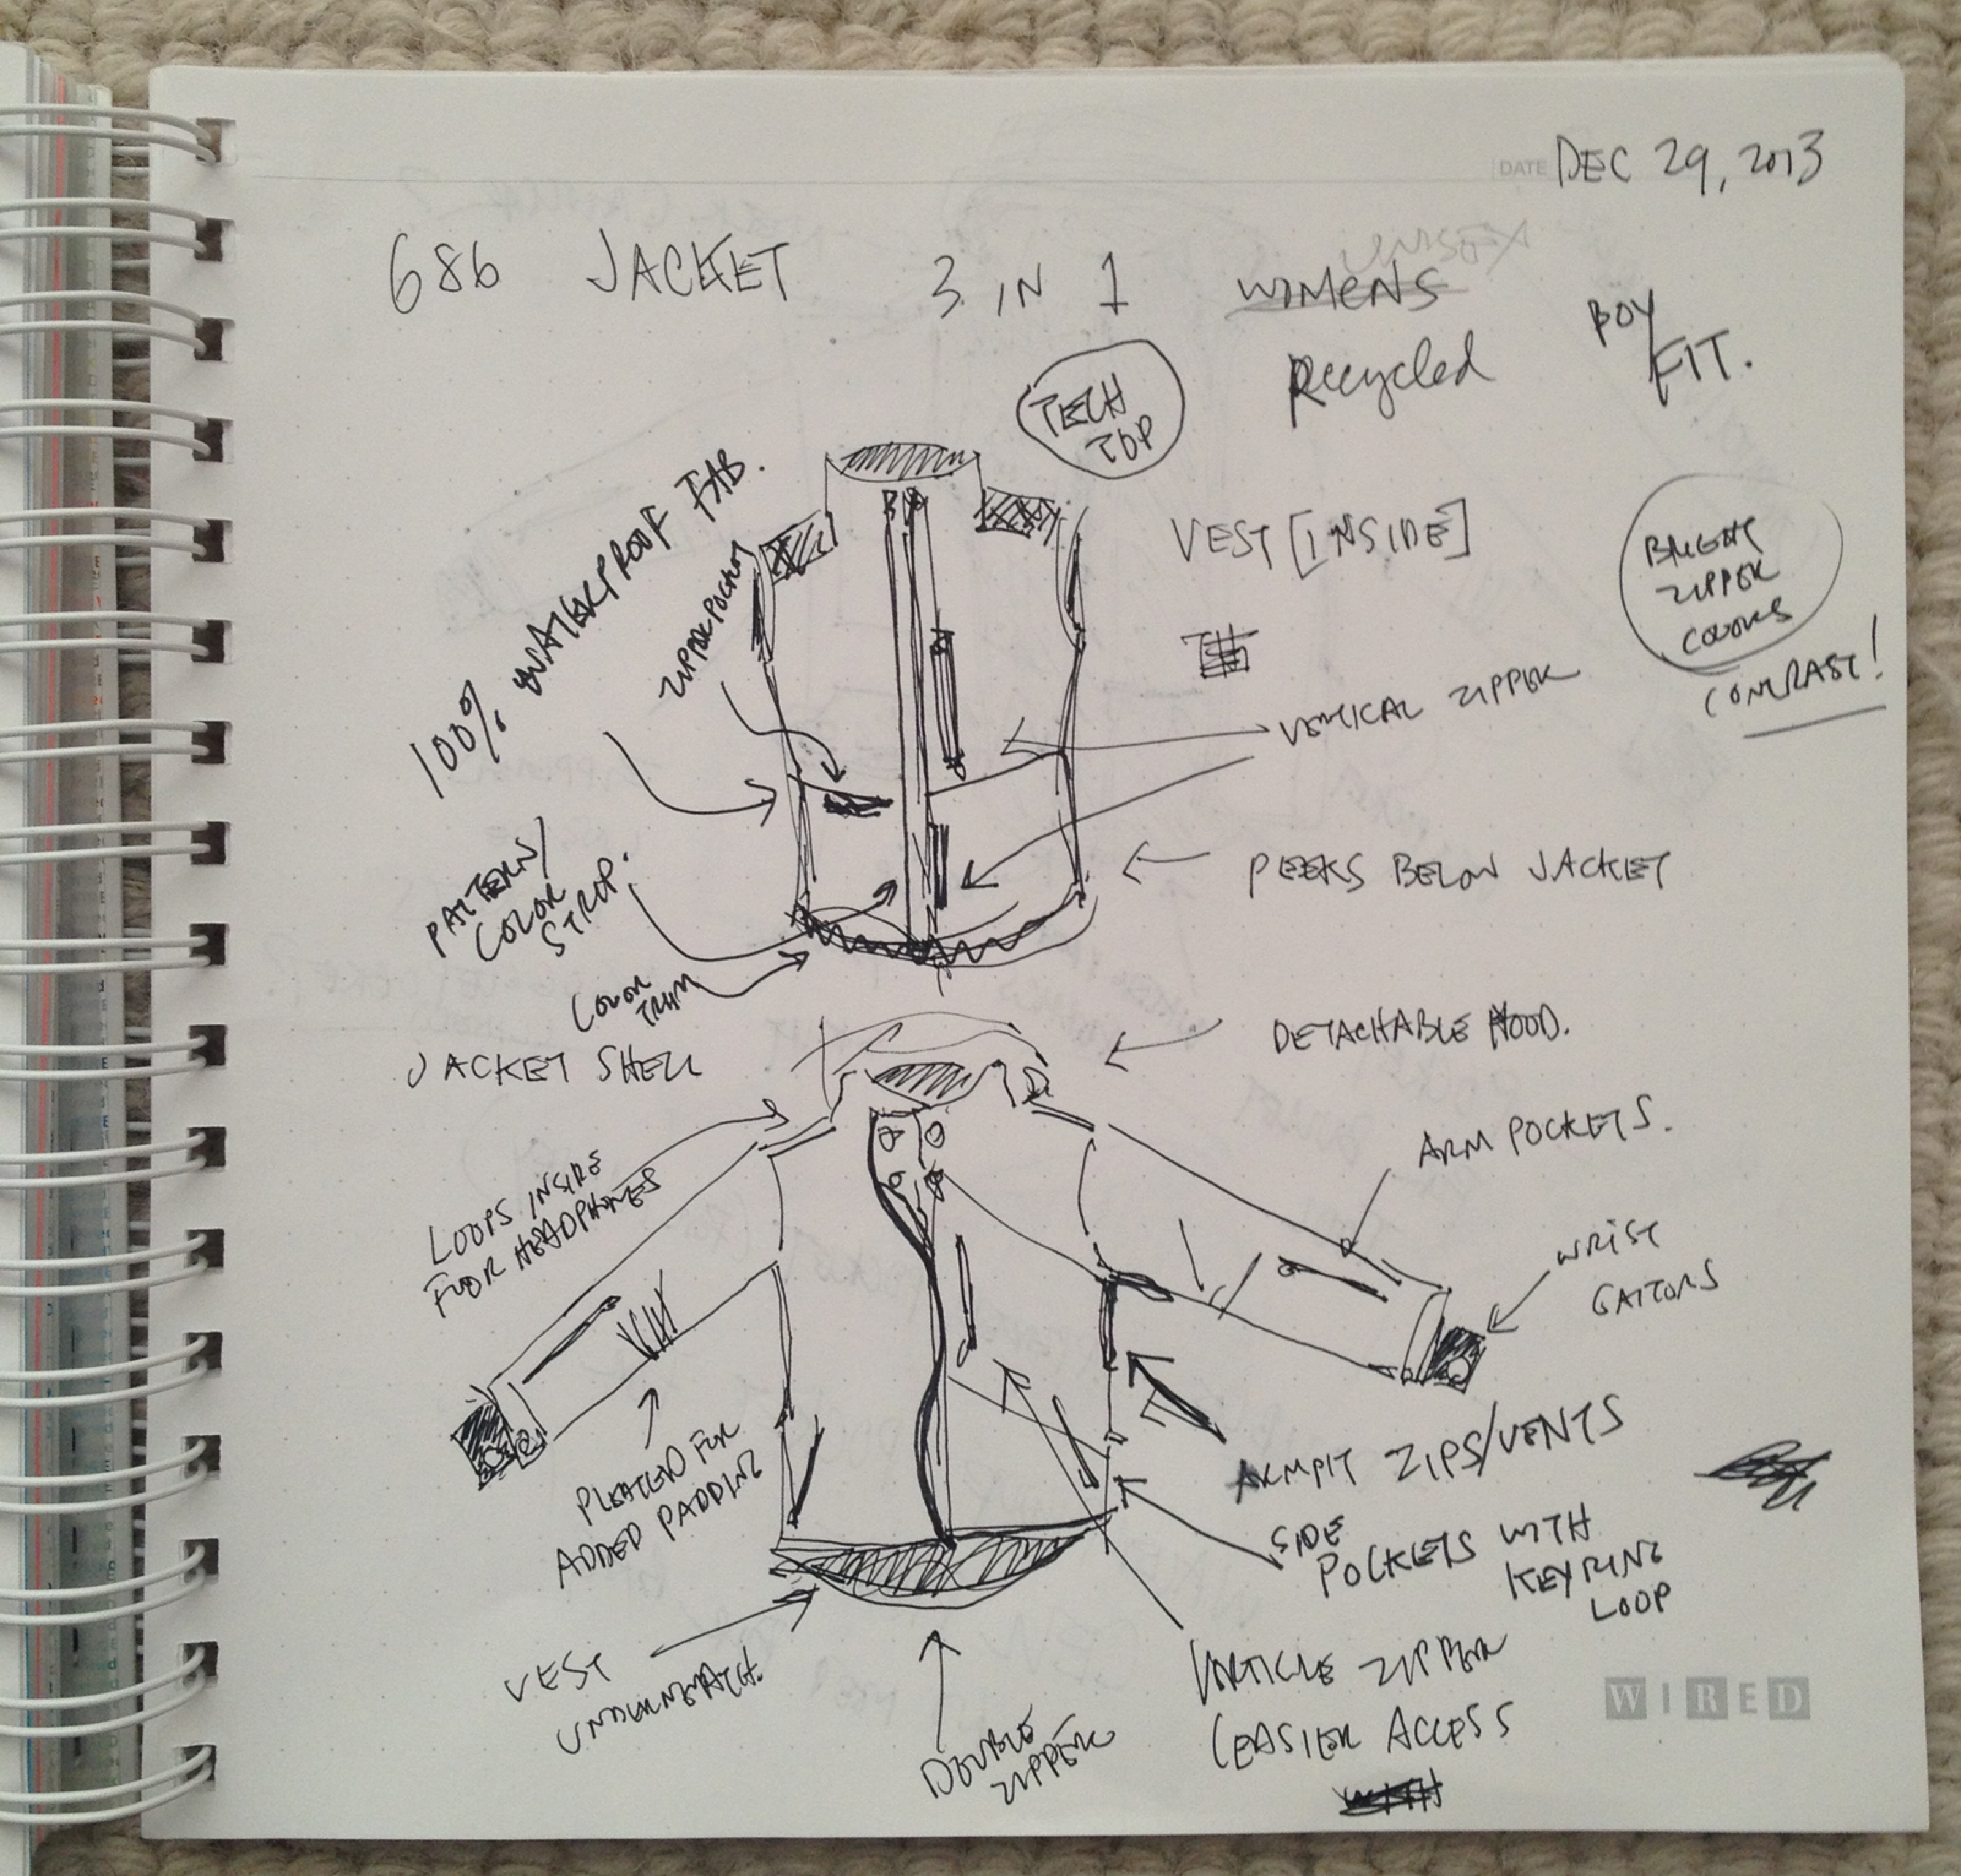 DATE DEC 29, 2013
686 JACKET 3 IN 1 WIMENS
UNISEX
BOY
FIT.
Recycled
TECH
TOP
100% WATERPROOF FAB.
ZIPPER POCKET
VEST [INSIDE]
BRIGHT
ZIPPER
COLORS
CONTRAST!
VERTICAL ZIPPER
PATTERN/
COLOR
STROP.
PEEKS BELOW JACKET
COLOR
TRIM
JACKET SHELL
DETACHABLE HOOD.
ARM POCKETS.
LOOPS INSIDE
FOOR HEADPHONES
WRIST
GAITORS
PLEATED FOR
ADDED PADDING
ARMPIT ZIPS/VENTS
SIDE
POCKETS WITH
KEYRING
LOOP
VEST
UNDERNEATH.
DOUBLE
ZIPPER
VIRTICLE ZIPPER
(EASIER ACCESS
WITH
WIRED